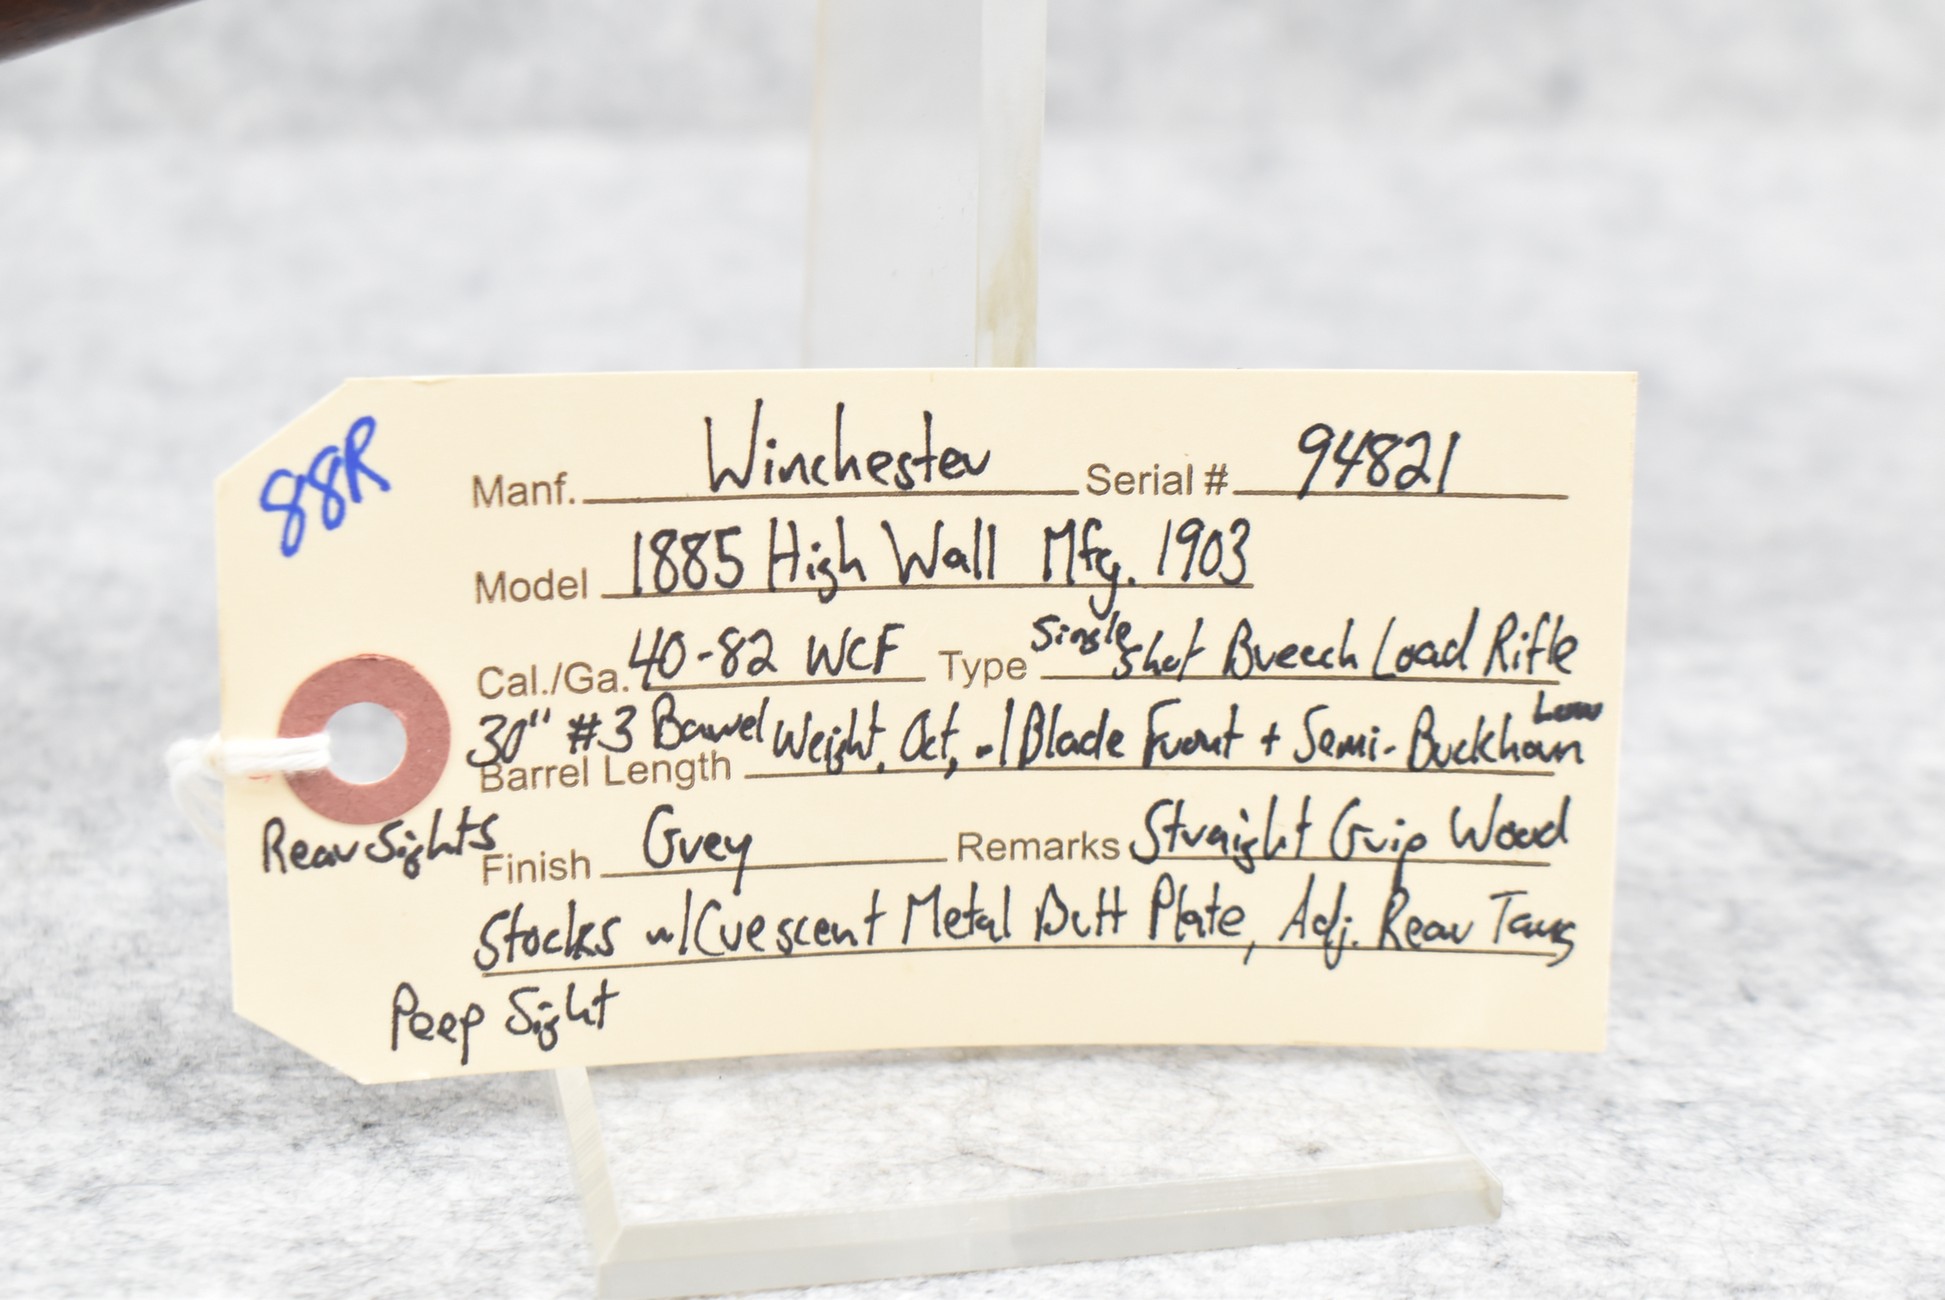 88R
Manf. Winchester Serial # 94821
Model 1885 High Wall Mfg. 1903
Cal./Ga. 40-82 WCF Type Single Shot Breech Load Rifle
Barrel Length 30" #3 Barrel Weight, Oct, w/Blade Front + Semi-Buckhorn Low
Rear Sights
Finish Grey Remarks Straight Grip Wood
Stocks w/Crescent Metal Butt Plate, Adj. Rear Tang
Peep Sight